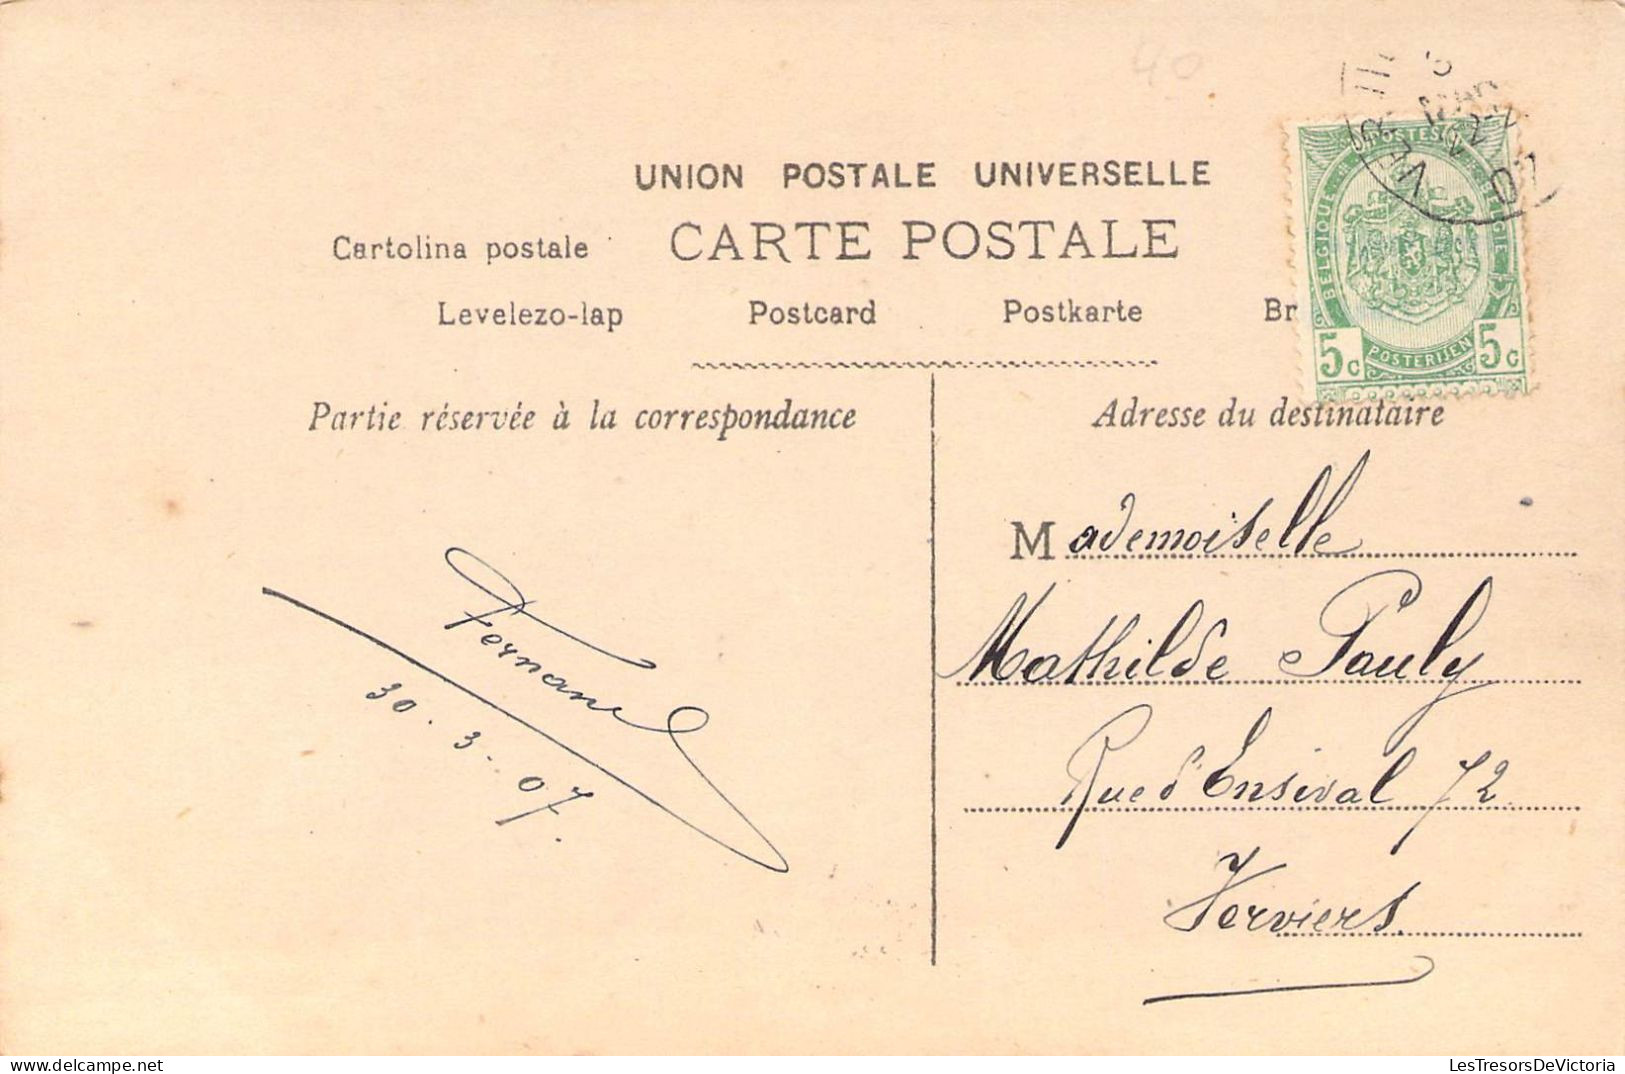 40
UNION POSTALE UNIVERSELLE
Cartolina postale CARTE POSTALE
Levelezo-lap Postcard Postkarte Br
POSTES
BELGIQUE BELGIE
5c POSTERIJEN 5c
VERV
07
Partie réservée à la correspondance
Fernand
30.3.07.
Adresse du destinataire
Mademoiselle
Mathilde Pauly
Rue d'Ensival 72
Verviers
LesTresorsDeVictoria